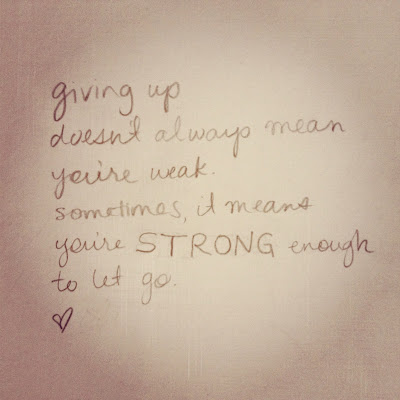 giving up
doesn't always mean
you're weak.
sometimes, it means
you're STRONG enough
to let go.